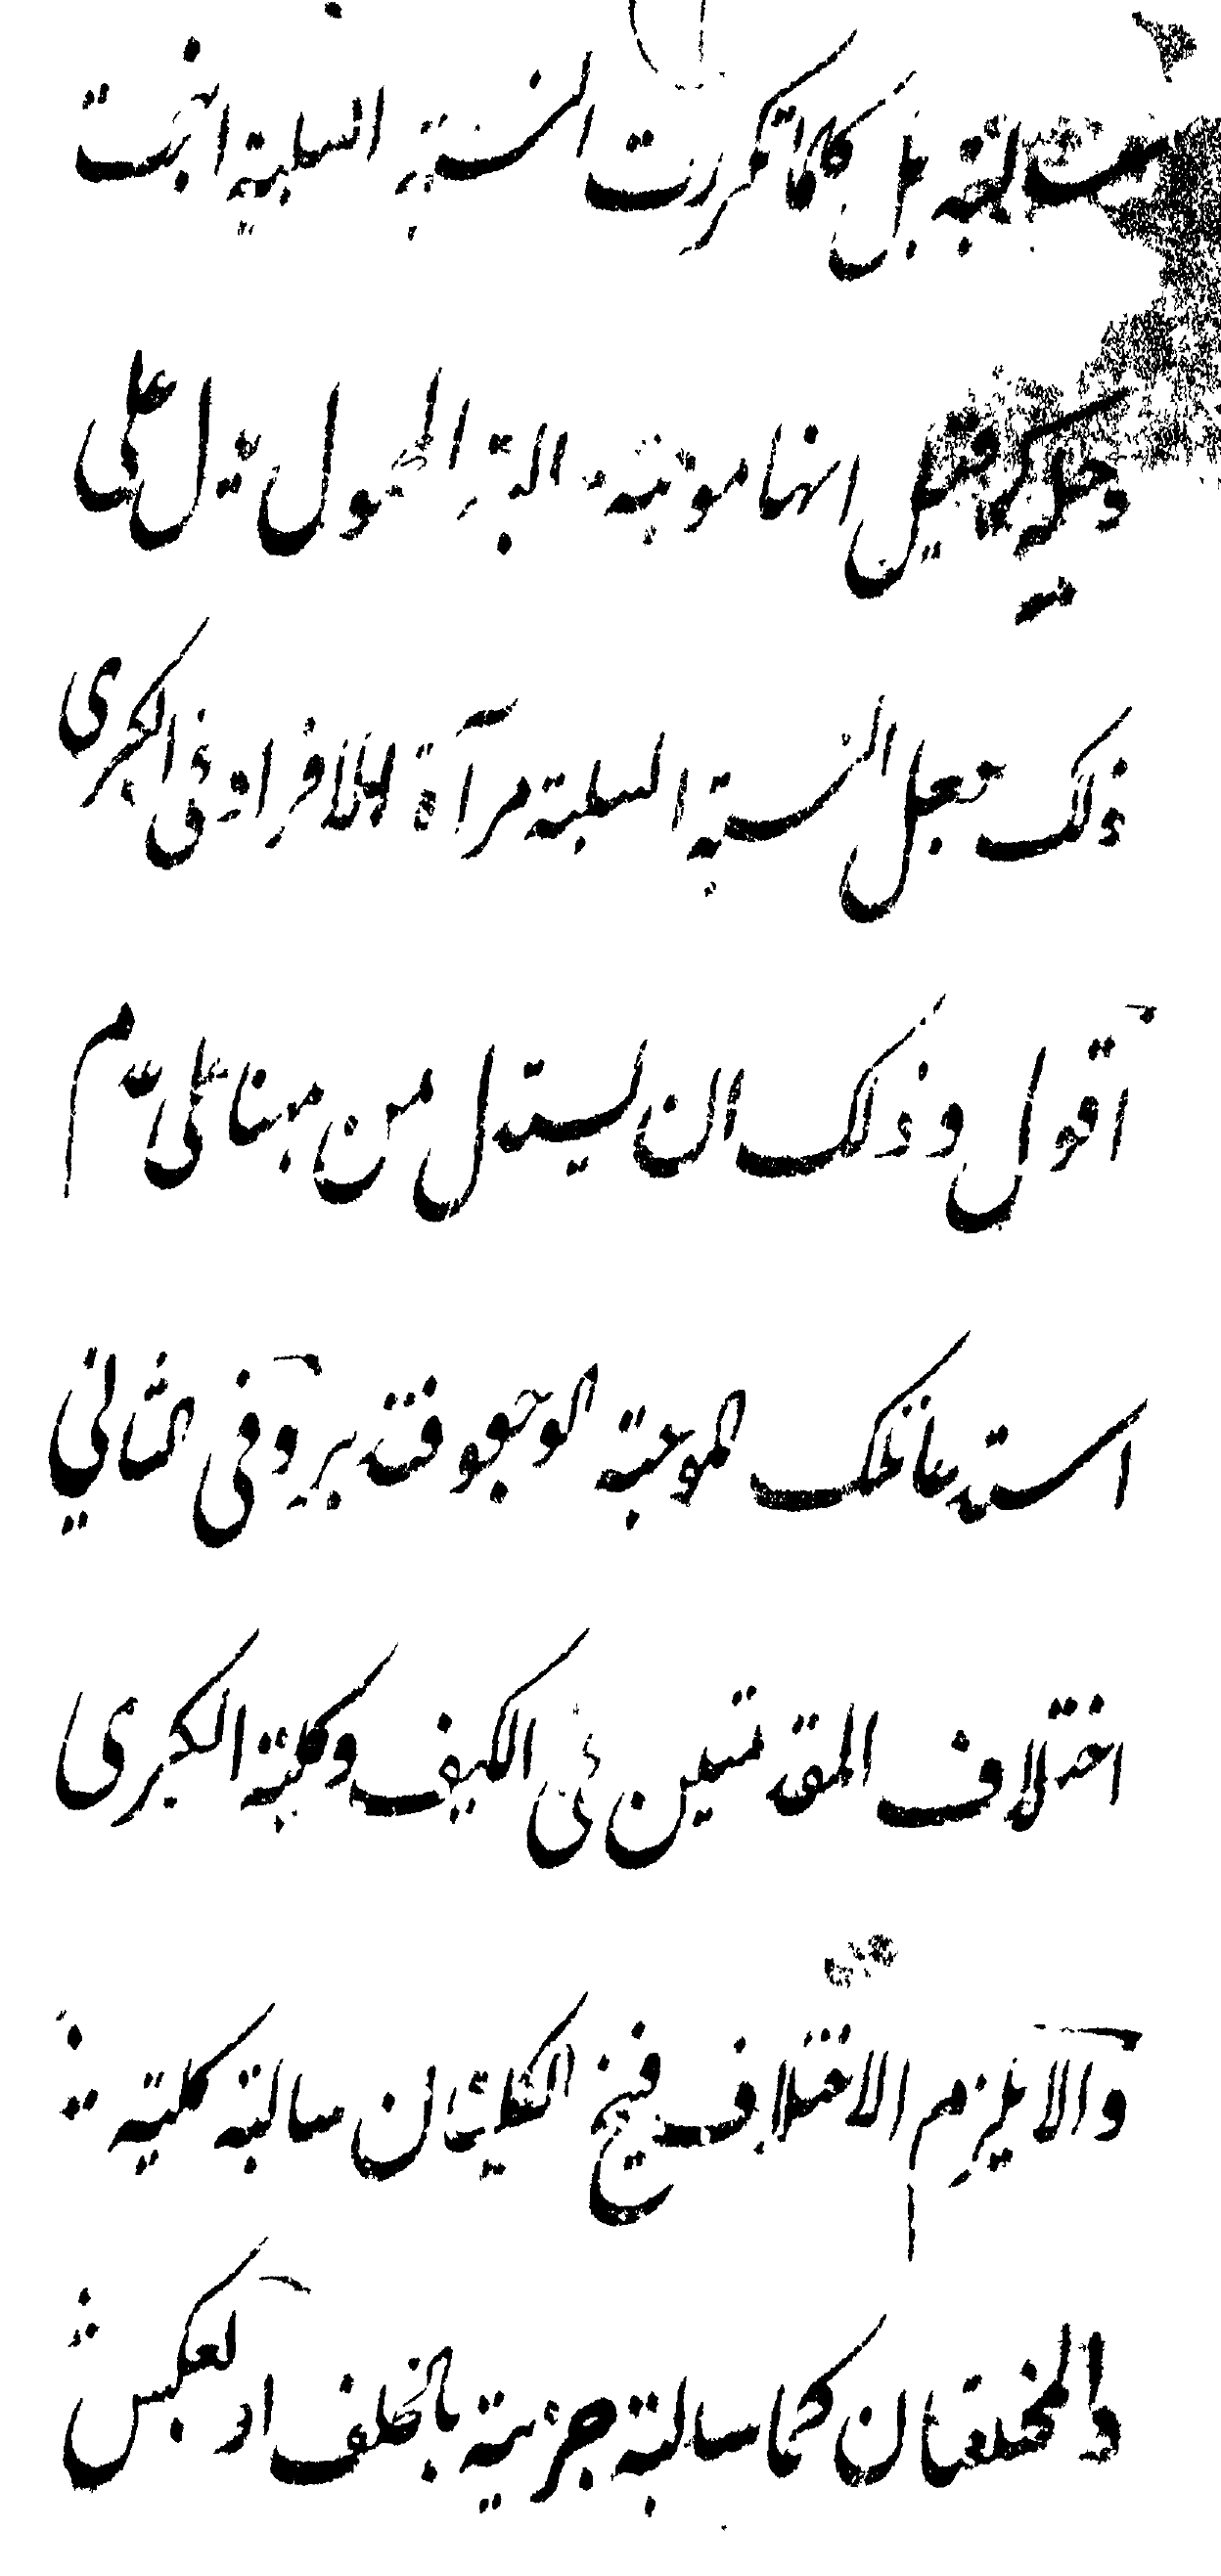 سالبة بل كلما تكررت النسبة السلبية انتجت
وحله قيل انها موجبة سالبة المحمول يدل على
ذلك جعل النسبة السلبية مرآة للافراد في الكبرى
اقول وذلك ان ليستدل من ههنا على
استدعائك الموجبة الوجود فتدبر وفي الثاني
اختلاف المقدمتين في الكيف وكلية الكبرى
والا يلزم الاختلاف فينتج الكليتان سالبة كلية
والمختلفتان كما سالبة جزئية بالخلف او لعكس